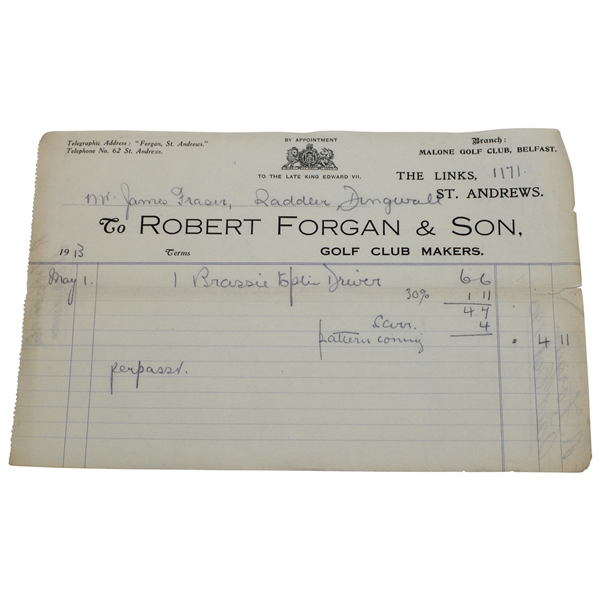 Telegraphic Address: "Forgan, St. Andrews."
Telephone No. 62 St. Andrews.
BY APPOINTMENT
TO THE LATE KING EDWARD VII.
Branch:
MALONE GOLF CLUB, BELFAST.
THE LINKS, 1171.
ST. ANDREWS.
Mr. James Fraser, Saddler, Dingwall
To ROBERT FORGAN & SON,
1913 Terms GOLF CLUB MAKERS.
May 1. 1 Brassie Driver 6 6
30% 1 11
4 7
Carr. 4
pattern coming 4 11
per passr.